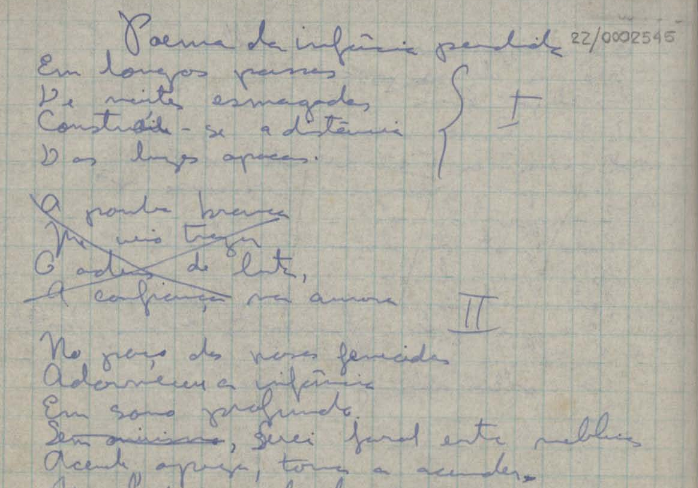 Poema da infância perdida 22/0002545
Em longos passos
De noites esmagadas
Constrói-se a distância I
Das luzes opacas.
A pomba branca
veio trazer
O adeus de luta,
A confiança na aurora II
No poço das rosas fenecidas
Adormeceu a infância
Em sono profundo.
Sem, Serei farol entre neblinas
Acende, apaga, torna a acender,